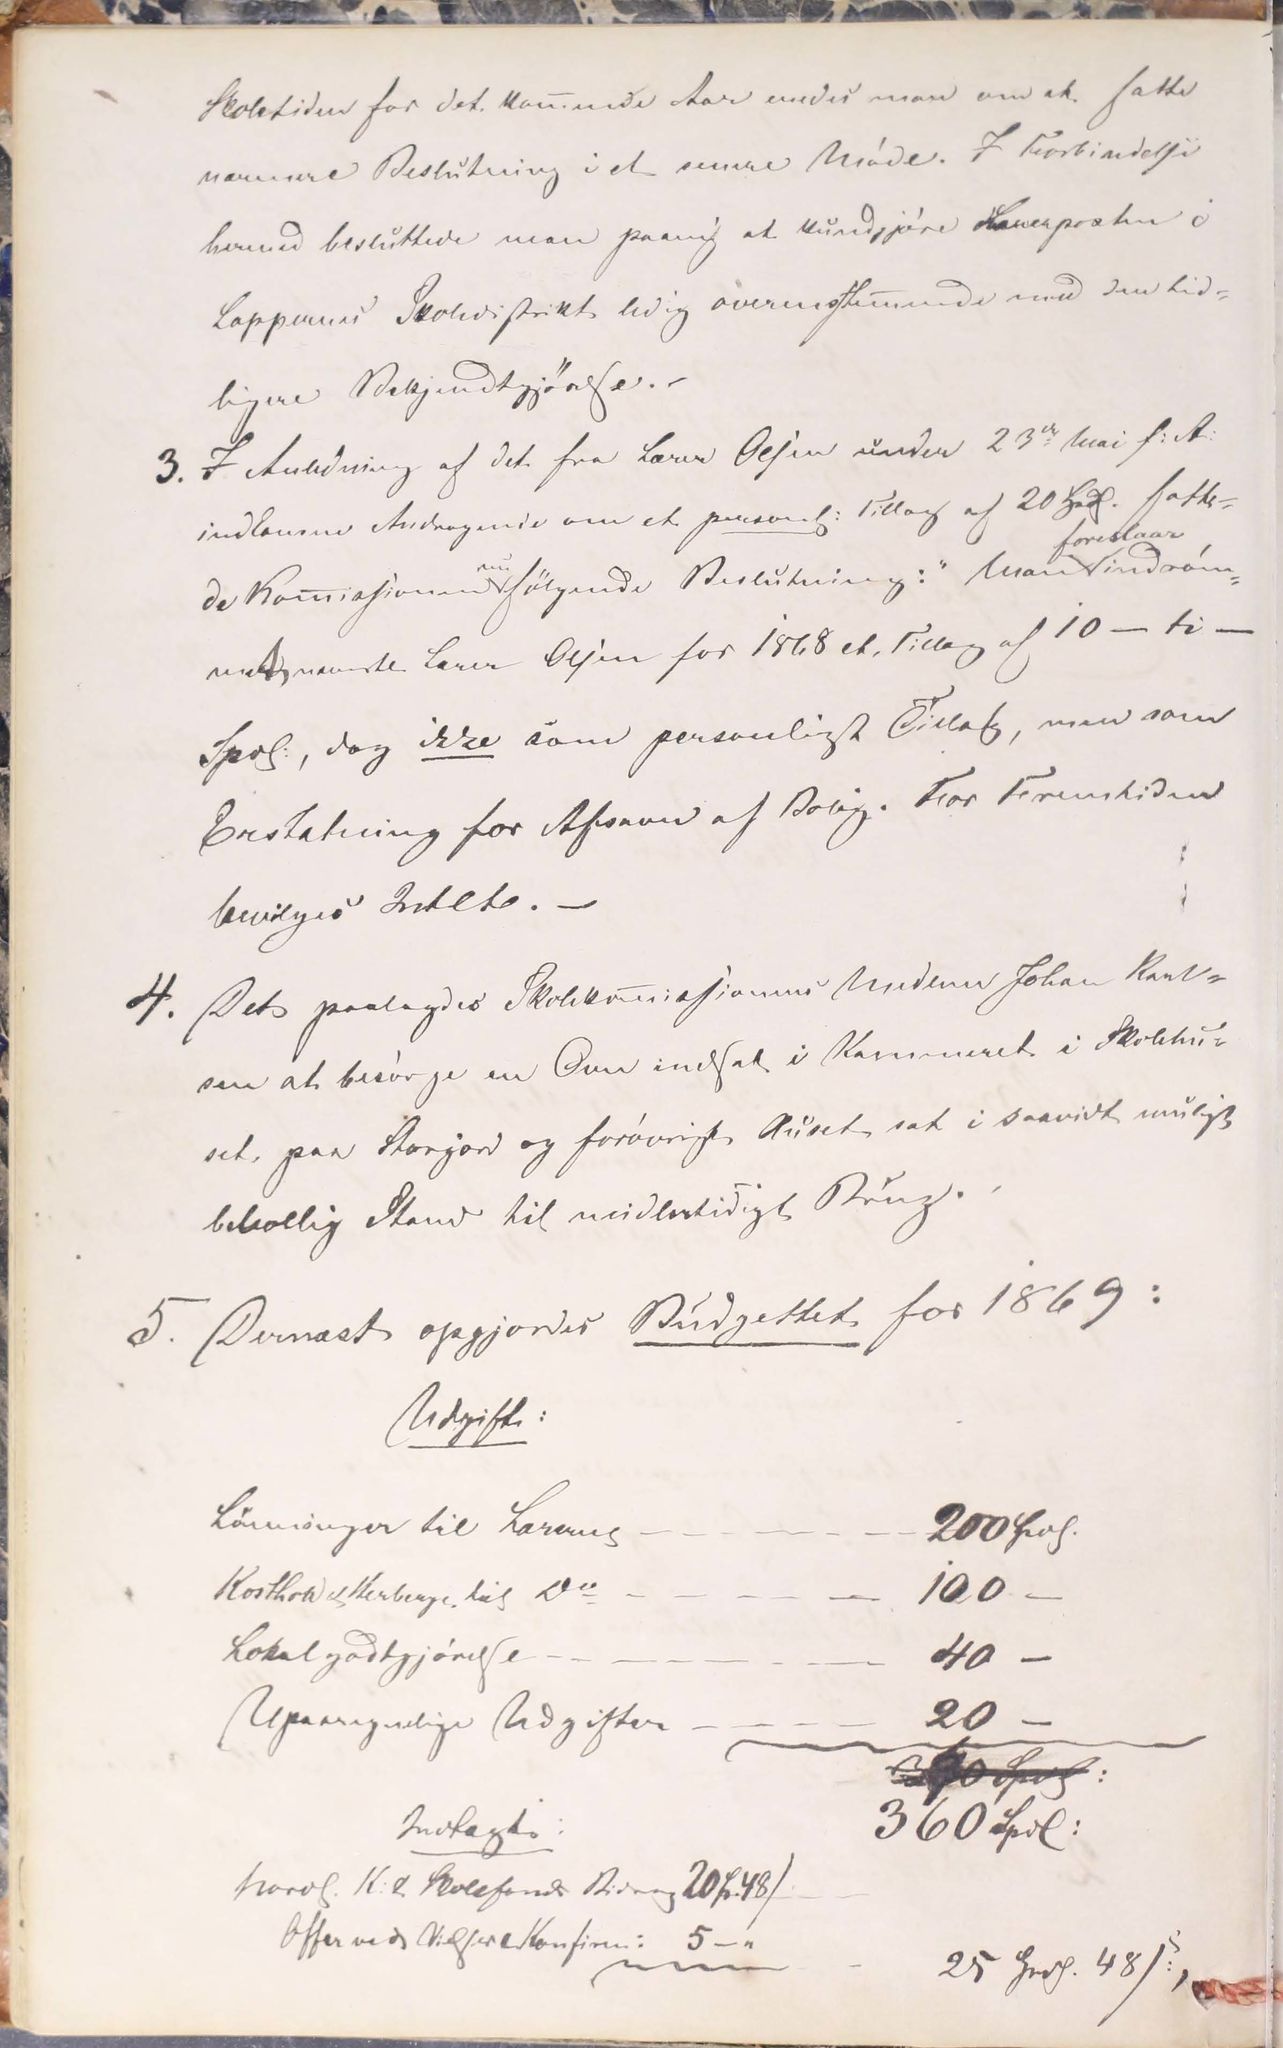 Skoletiden for det kommende Aar enedes man om at fatte
nærmere Beslutning i et senere Møde. I Forbindelse
hermed besluttede man paany at kundgjøre Lærerposten i
Lappernes Skoledistrikt ledig overensstemmende med den tid-
ligere Bekjendtgjørelse. -
3. I Anledning af det fra Lærer Olsen under 23de Mai f: A:
indkomne Andragende om et personl: Tillæg af 20 Spdl. fatte-
de Kommissionen nu følgende Beslutning: " Man foreslaar indrøm-
met nævnte Lærer Olsen for 1868 et Tillæg af 10 - ti -
Spdl:, dog ikke som personligt Tillæg, men som
Erstatning for Afsavn af Bolig. For Fremtiden
bevilges Intet. -
4. Det paalagdes Skolekommissionens Medlem Johan Karl-
sen at besørge en Ovn indsat i Kammeret i Skolehu-
set paa Storjord og forøvrigt Huset sat i saavidt muligt
beboelig Stand til midlertidigt Brug. -
5. Dernæst opgjordes Budgettet for 1869:
Udgift:
Lønninger til Lærerne - - - - - 200 Spdl.
Kosthold & Herberge til Do - - - - - 100 -
Lokalgodtgjørelse - - - - - 40 -
Upaaregnelige Udgifter - - - - 20 -
Spdl:
360 Spdl:
Indtægt:
Nordl. K: & Skolefonds Bidrag 20 Sp. 48 /
Offer ved Vielser & Konfirm: 5 - "
25 Spdl. 48 /s:,